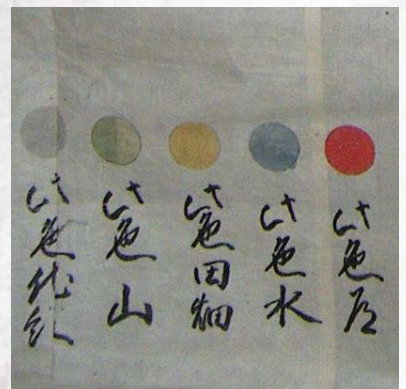 此色道
此色水
此色田畑
此色山
此色